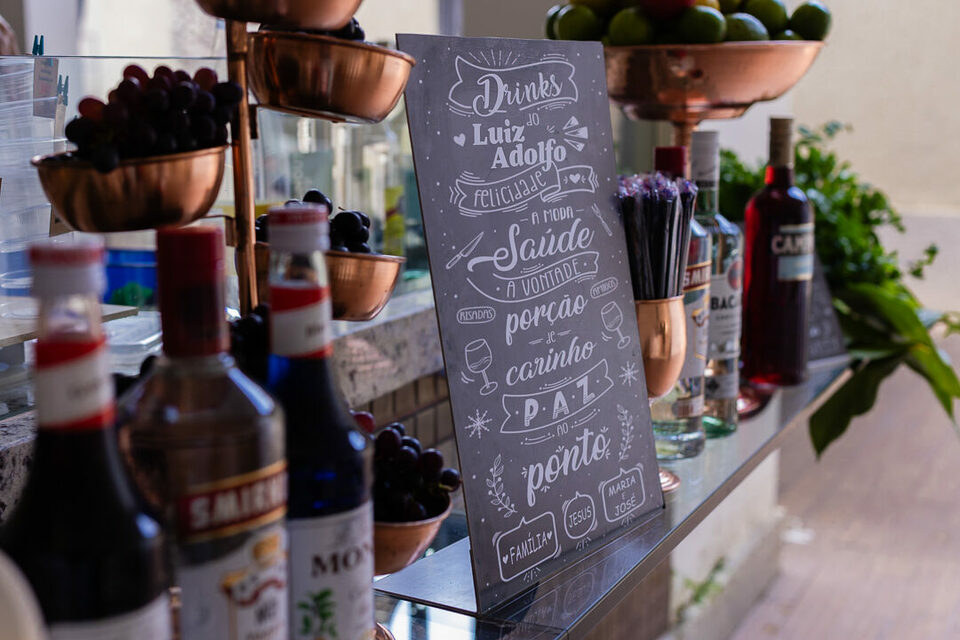 Drinks
do
Luiz
Adolfo
FELICIDADE
A MODA
Saúde
À VONTADE
RISADAS
AMIGOS
porção
de
carinho
PAZ
AO
ponto
♥FAMÍLIA♥
JESUS
MARIA
E
JOSÉ
SMIRN
MON
CAMP
BACA